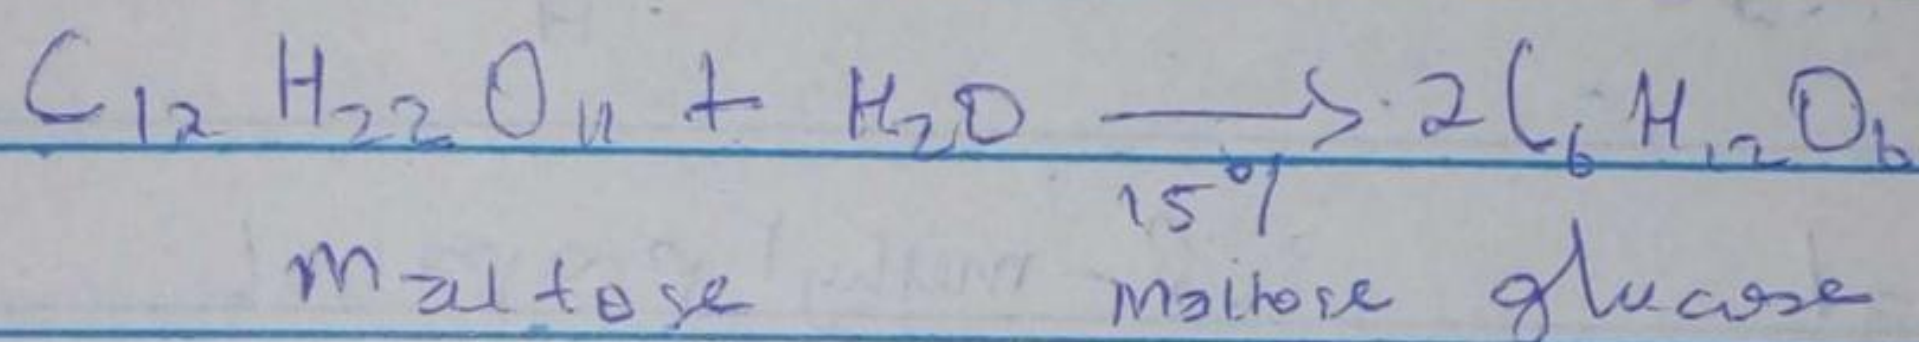 C₁₂ H₂₂ O₁₁ + H₂O ⟶ 2C₆ H₁₂ O₆
15%
Maltose Maltose glucose